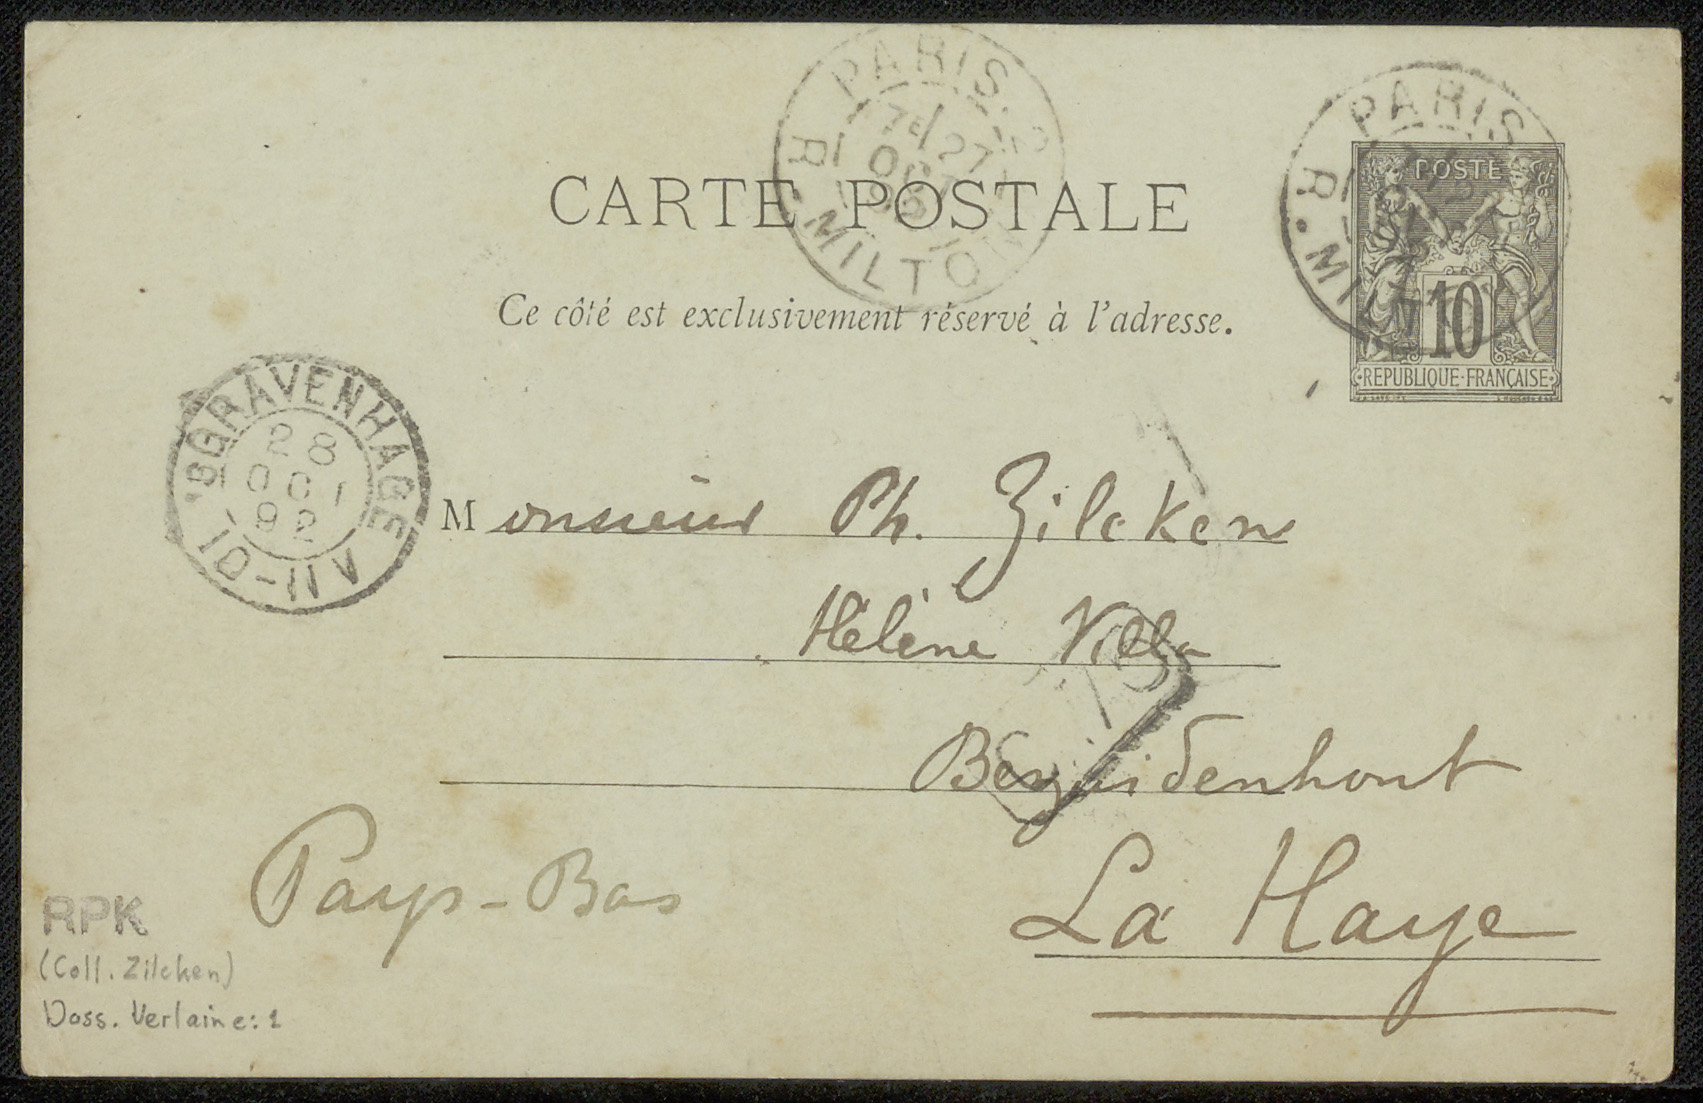 CARTE POSTALE
Ce côté est exclusivement réservé à l'adresse.
PARIS
7E 27
OCT
R. MILTON
PARIS
R. MIL
POSTE
10
REPUBLIQUE FRANÇAISE
'SGRAVENHAGE
28
OCT
92
10-11V
Monsieur Ph. Zilcken
Hélène Villa
Bezuidenhout
La Haye
Pays-Bas
RPK
(Coll. Zilcken)
Doss. Verlaine: 1